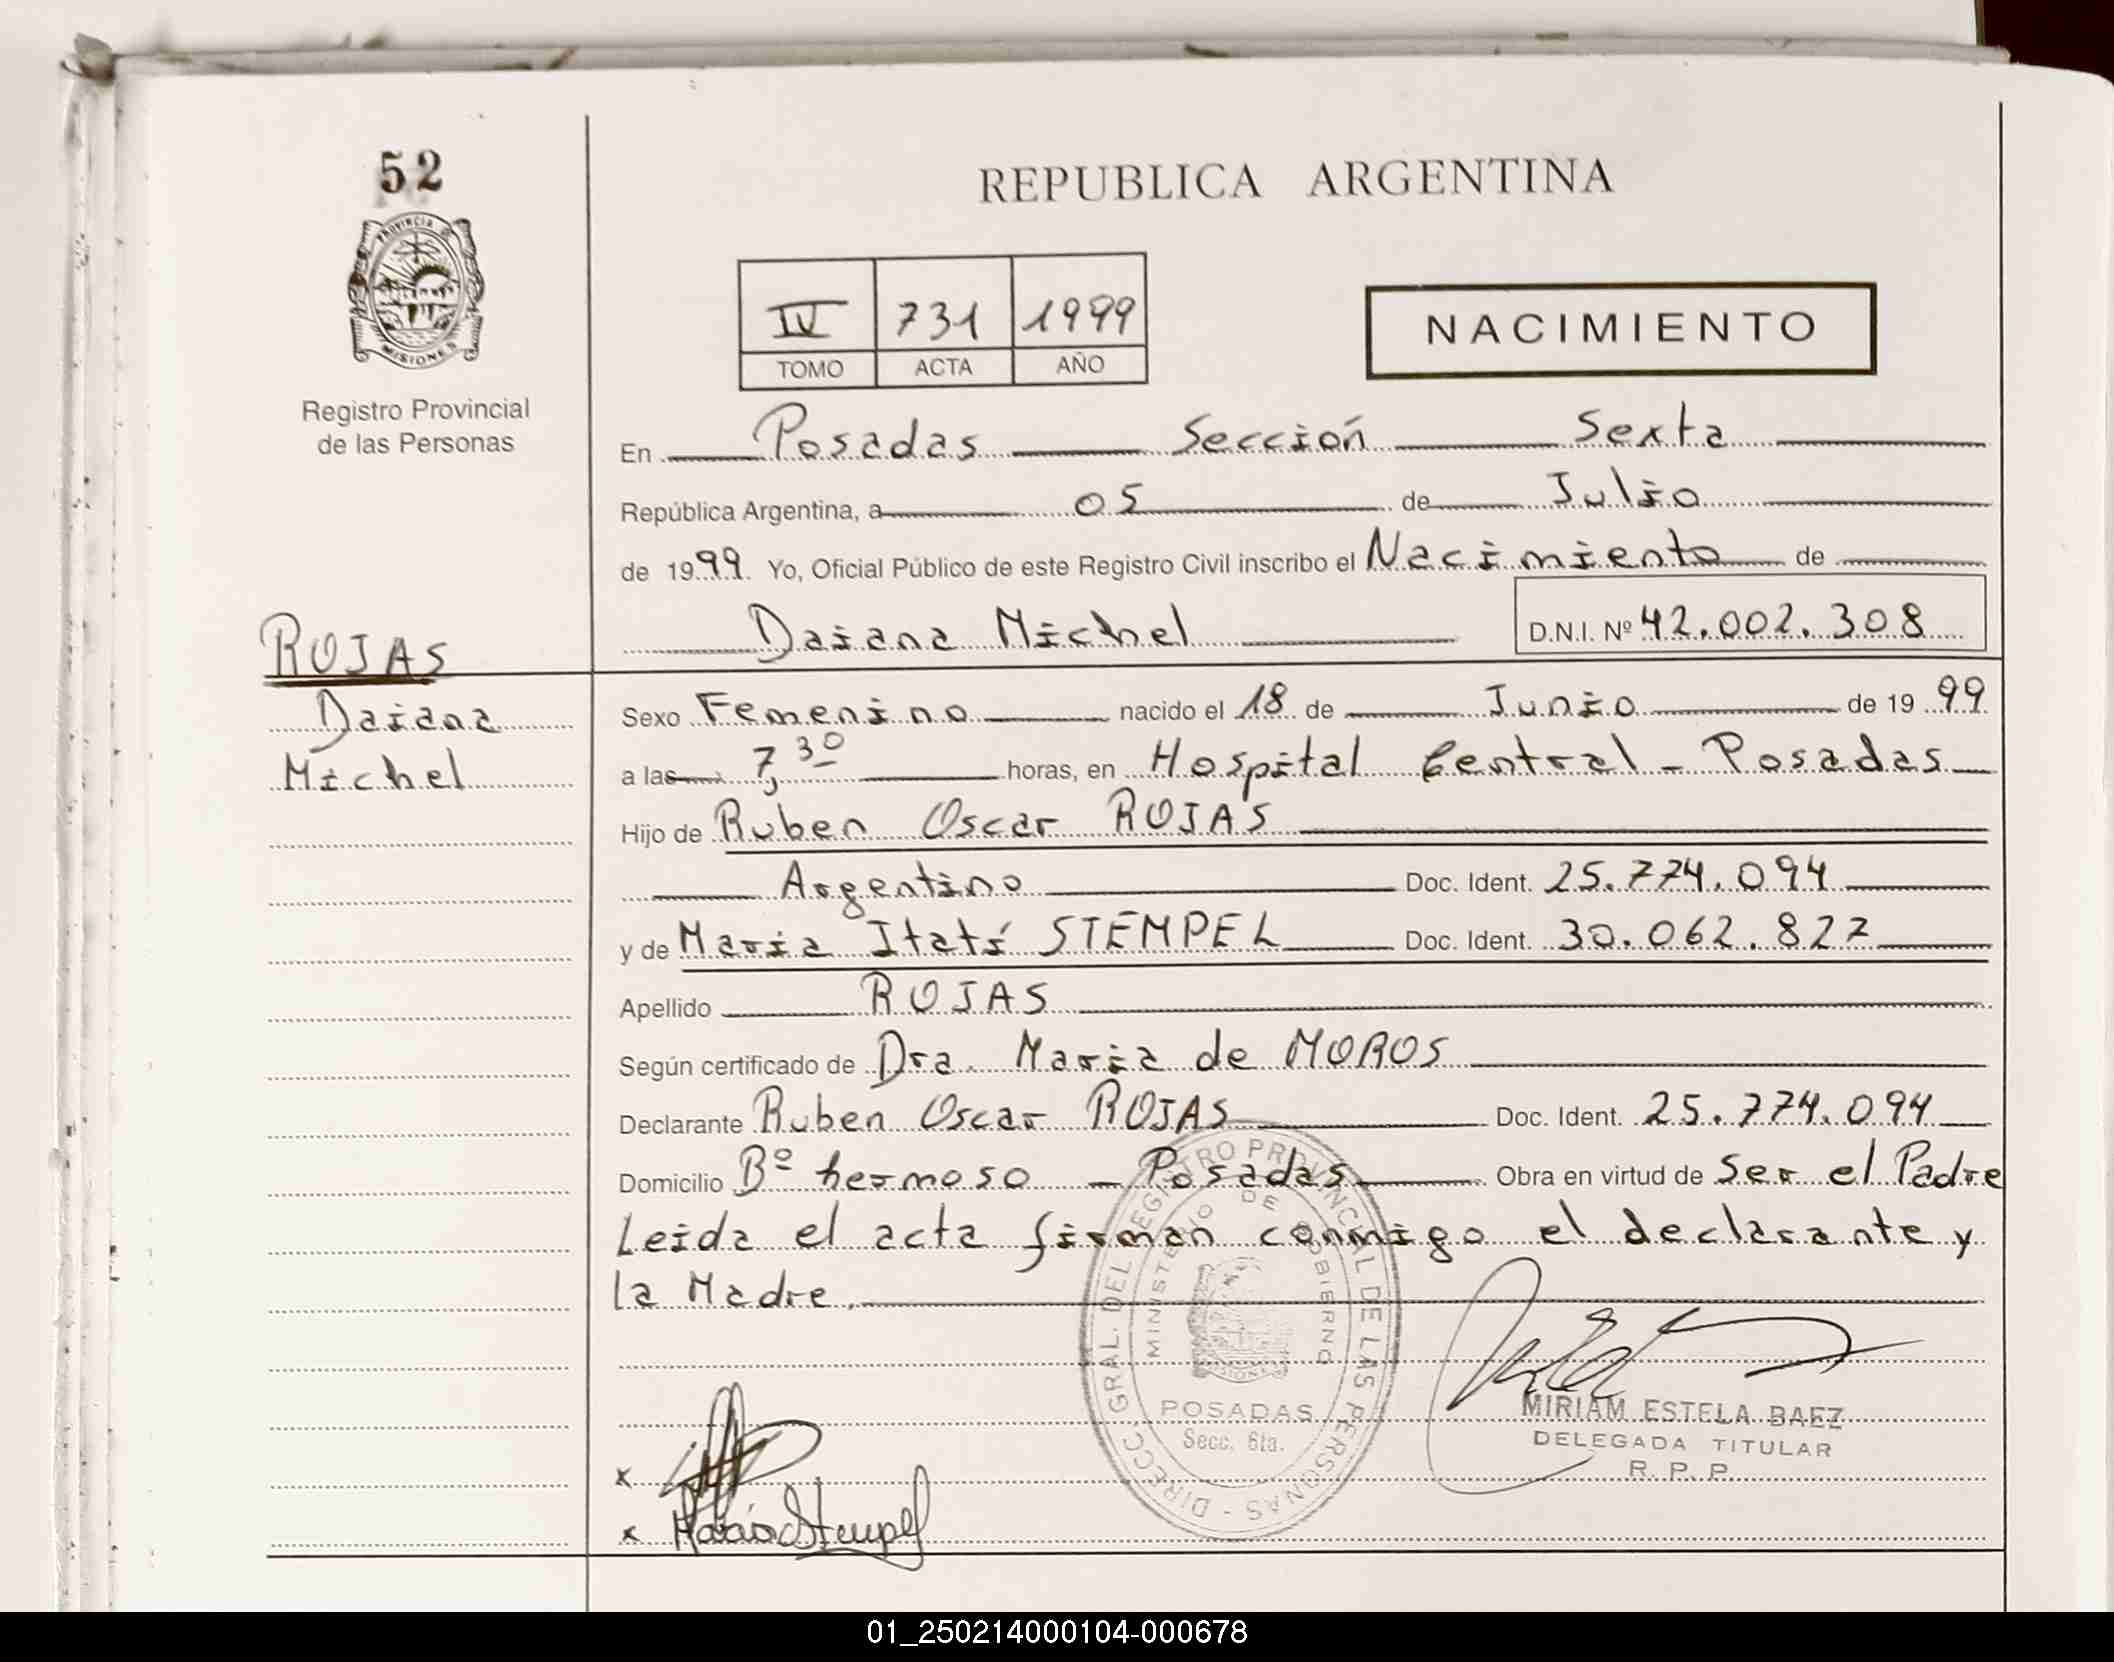 52
PROVINCIA DE
MISIONES
Registro Provincial
de las Personas
REPUBLICA ARGENTINA
IV 731 1999
TOMO ACTA AÑO
NACIMIENTO
En Posadas Sección Sexta
República Argentina, a 05 de Julio
de 1999. Yo, Oficial Público de este Registro Civil inscribo el Nacimiento de
Daiana Michel D.N.I. Nº 42.002.308
ROJAS
Daiana
Michel
Sexo Femenino nacido el 18 de Junio de 1999
a las 7,30 horas, en Hospital Central - Posadas
Hijo de Ruben Oscar ROJAS
Argentino Doc. Ident. 25.774.094
y de Maria Itatí STEMPEL Doc. Ident. 30.062.827
Apellido ROJAS
Según certificado de Dra. Maria de MOROS
Declarante Ruben Oscar ROJAS Doc. Ident. 25.774.094
Domicilio Bº hermoso - Posadas Obra en virtud de Ser el Padre
Leida el acta firman conmigo el declarante y
la Madre.
DIRECC. GRAL. DEL REGISTRO PROVINCIAL DE LAS PERSONAS -
MINISTERIO DE GOBIERNO
MISIONES
POSADAS
Secc. 6ta.
MIRIAM ESTELA BAEZ
DELEGADA TITULAR
R. P. P.
x
x María Stempel
01_250214000104-000678